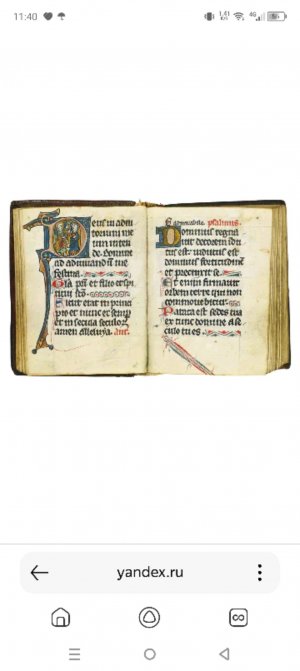 11:40
1,41
K/S
4G
56
eus in adiu
torium me
um inten
de. Domine
ad adiuuandum me
festina.
Gla pri et filio et spi
ritui sco.
Sicut erat in princi
pio et nunc et semp
et in secula seculoz
amen alleluya. ant.
psalmus.
Dominus regna
uit decorem indu
tus est: indutus est
dominus fortitudinem
et precinxit se.
Et enim firmauit
orbem terre qui non
commouebitur.
Parata est sedes tua
ex tunc domine a se
culo tu es.
yandex.ru